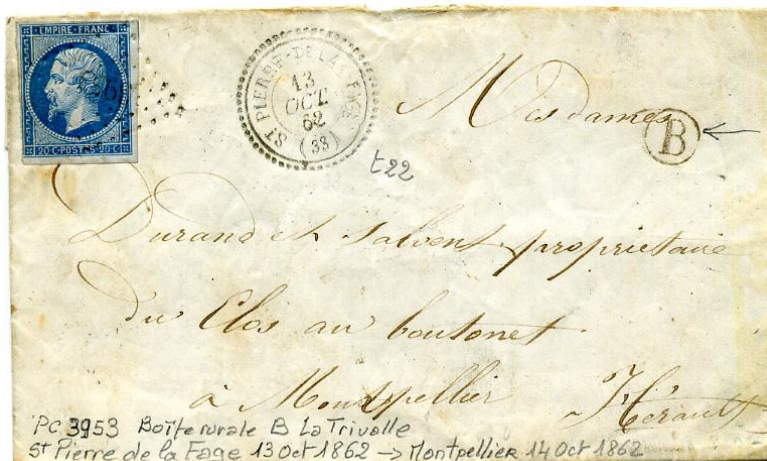 EMPIRE FRANC
20 C POSTES 20 C
ST PIERRE-DE-LA-FAGE
13
OCT.
62
(33)
t22
Mesdames
B
Durand et Salvent propriétaire
du Clos au boutonet
à Montpellier Hérault
PC 3953 Boîte rurale B La Trivalle
St Pierre de la Fage 13 Oct 1862 → Montpellier 14 Oct 1862